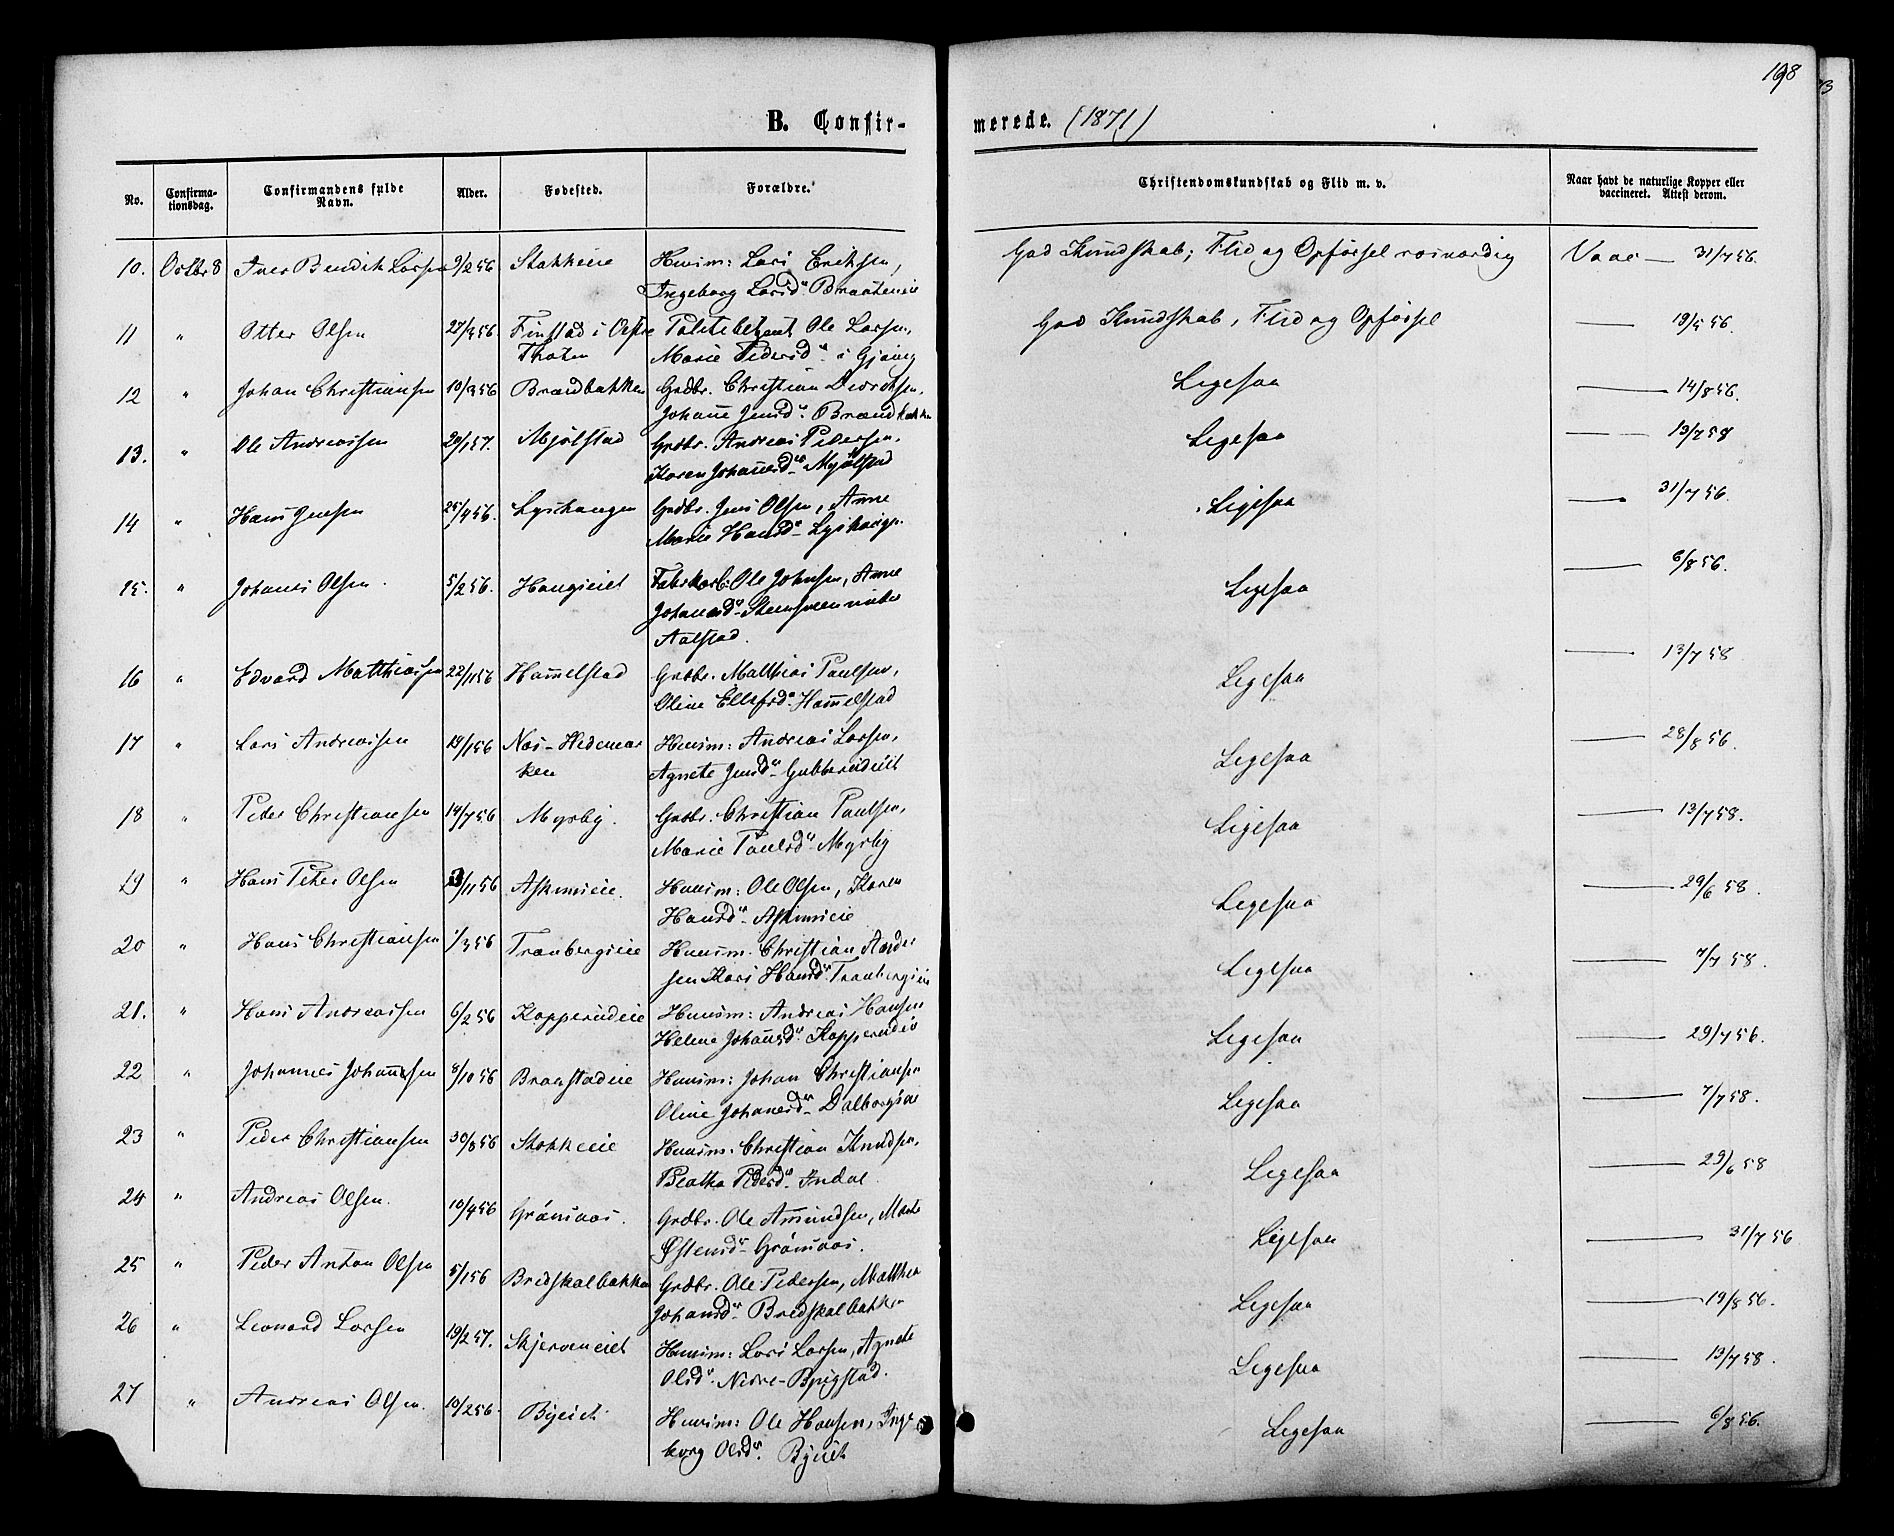 198
B. Confir-
merede. (1871)
No.
Confirma-
tionsdag.
Confirmandens fulde
Navn.
Alder.
Fødested.
Forældre.
Christendomskundskab og Flid m. v.
Naar havt de naturlige Kopper eller
vaccineret. Attest derom.
10. Octbr 8 Iver Bendik Larsen 9/2 56 Stokkeie Huusm: Lars Eriksen, God Kundskab; Flid og Opførsel rosværdig Vacc — 31/7 56.
Ingeborg Larsd. Braateneie
11 " Otter Olsen 27/3 56. Finstad i Østre Politibetjent Ole Larsen, God Kundskab, Flid og Opførsel — 19/5 56.
Thoten Marie Pedersd. i Gjøvig
12 " Johan Christiansen 10/3 56 Brændbakken Grdbr. Christian Ligesaa — 14/8 56.
Johane Jensd. Brændbakken
13. " Ole Andreassen 20/1 57. Mjølstad Grdbr. Andreas Pedersen, Ligesaa — 13/7 58
Karen Johanesd. Mjølstad
14 " Hans Jensen 25/4 56. Lyshaugen Grdbr. Jens Olsen, Anne Ligesaa — 31/7 56.
Marie Hansd. Lyshaug.
15. " Johanes Olsen. 5/2 56. Haugseiet Ole Johnsen, Anne Ligesaa — 6/8 56.
Johanesd. Steensveen
Aalstad.
16 " Edvard Matthiassen 22/11 56 Hammelstad Grdbr. Matthias Paulsen, Ligesaa — 13/7 58
Oline Ellefsd. Hammelstad
17 " Lars Andreassen 19/1 56 Næs - Hedemar Huusm: Andreas Larsen, Ligesaa — 28/8 56.
ken Agnete Jensd. Gubberudeiet
18 " Peder Christiansen 14/7 56 Myrby. Grdbr. Christian Paulsen, Ligesaa — 13/7 58.
Marie Paulsd. Myrby
19 " Hans Peter Olsen 3/11 56 Askimeie. Huusm: Ole Olsen, Karen Ligesaa — 29/6 58.
Hansd. Askimeie
20 " Hans Christiansen 1/3 56 Tranbergseie Huusm. Christian Ander Ligesaa — 7/7 58.
sen Kari Hansd. Tranbergseie
21. " Hans Andreassen 6/2 56 Kopperudeie Huusm: Andreas Hansen Ligesaa — 29/7 56.
Helene Johansd. Kopperudeie
22 " Johannes Johannesen 8/10 56 Braastadeie Huusm: Johan Christiansen Ligesaa — 7/7 58.
Oline Johanesd. Dalborgseie
23 " Peder Christiansen 30/8 56 Stokkeeie Huusm: Christian Knudsen, Ligesaa — 29/6 58
Beatha Pedersd. Indal.
24 " Andreas Olsen. 10/4 56 Grønsaas. Grdbr. Ole Amundsen, Marte Ligesaa — 31/7 56
Østensd. Grønsaas.
25 " Peder Anton Olsen 5/1 56 Bredskalbakken Grdbr. Ole Pedersen, Matthea Ligesaa — 19/8 56.
Johansd. Bredskalbakken
26 " Leonard Larsen 19/2 57. Skjerveneiet Huusm: Lars Larsen, Agnete Ligesaa — 13/7 58.
Olsd. Nedre-
27 " Andreas Olsen. 10/2 56. Byeiet Huusm: Ole Hansen, Inge Ligesaa — 6/8 56.
borg Olsd. Byeiet